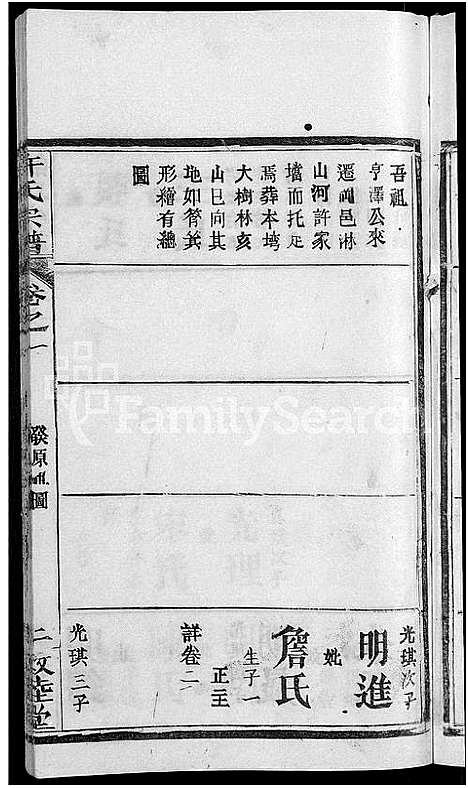 吾祖
亨澤公來
遷潤邑淋
山河許家
壋而托足
焉葬本塆
大樹林亥
山巳向其
地如筲箕
形繪有總
圖
光琪次子
明進
妣
詹氏
生子一
正主
詳卷二
光琪三子
許氏宗譜
卷之一
原 圖
二 敦睦堂
FamilySearch